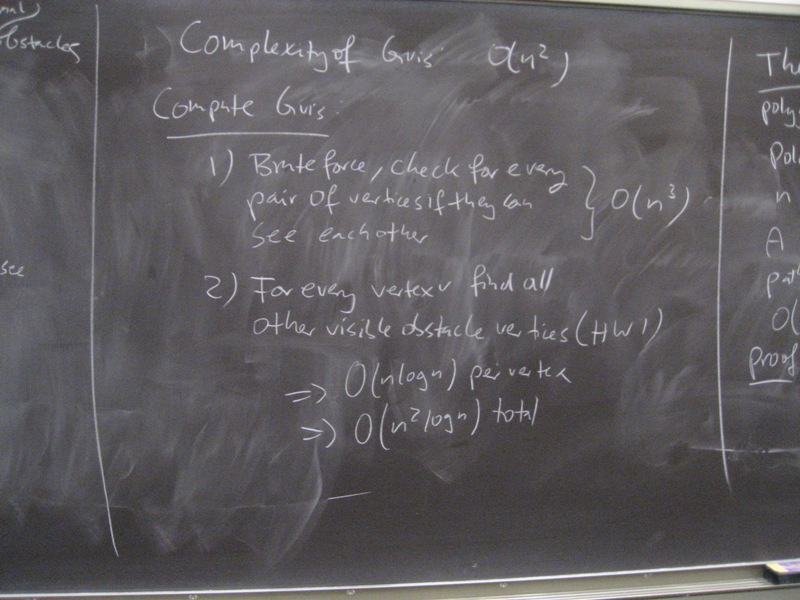 obstacles
see
Complexity of Gvis: O(n²)
Compute Gvis:
1) Brute force, check for every
pair of vertices if they can
see each other
} O(n³)
2) For every vertex v find all
other visible obstacle vertices (HW1)
=> O(n log n) per vertex
=> O(n² log n) total
The
poly
pol
n
A
pat
O(
proof